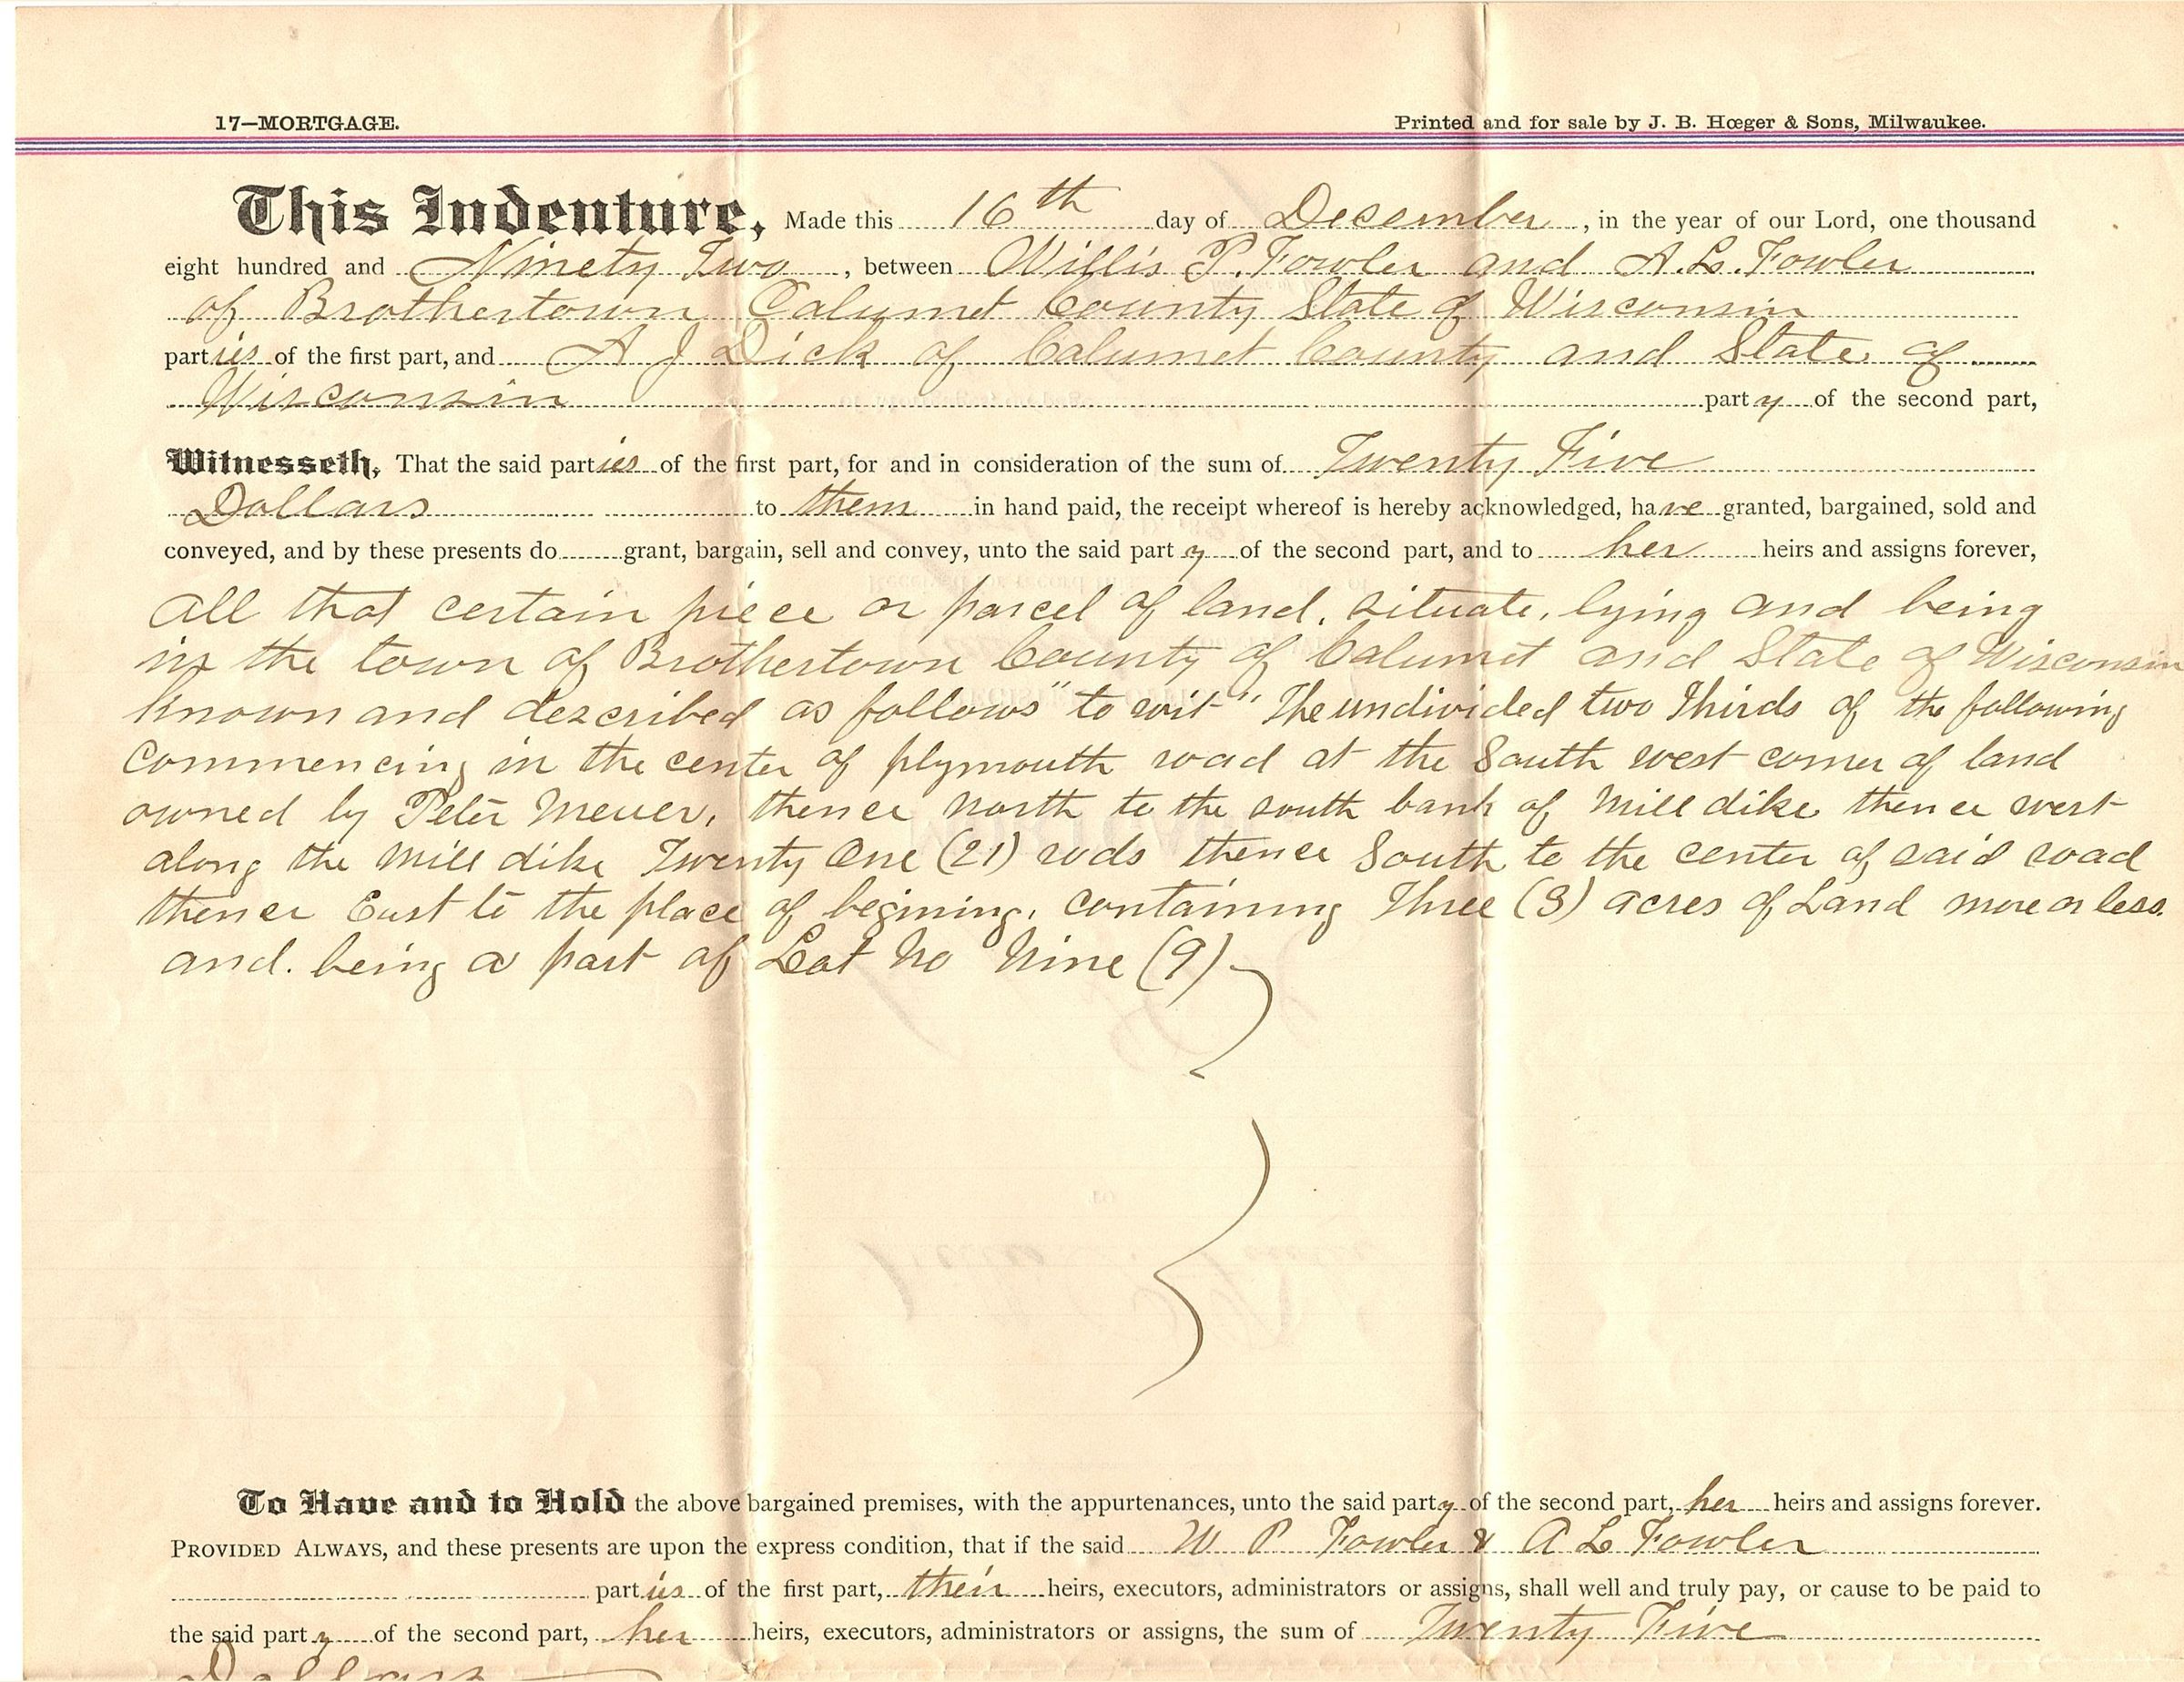 17—MORTGAGE. Printed and for sale by J. B. Hœger & Sons, Milwaukee.
This Indenture, Made this 16th day of December, in the year of our Lord, one thousand
eight hundred and Ninety Two, between Willis P. Fowler and A. L. Fowler
of Brothertown Calumet County State of Wisconsin
parties of the first part, and A J Dick of Calumet County and State of
Wisconsin party of the second part,
Witnesseth, That the said parties of the first part, for and in consideration of the sum of Twenty Five
Dollars to them in hand paid, the receipt whereof is hereby acknowledged, have granted, bargained, sold and
conveyed, and by these presents do grant, bargain, sell and convey, unto the said party of the second part, and to her heirs and assigns forever,
all that certain piece or parcel of land, situate, lying and being
in the town of Brothertown County of Calumet and State of Wisconsin
Known and described as follows "to wit" The undivided two Thirds of the following
Commencing in the center of plymouth road at the South west corner of land
owned by Peter Meuer, thence north to the south bank of Mill dike thence west
along the Mill dike Twenty One (21) rods thence South to the center of said road
thence East to the place of begining, containing Three (3) acres of Land more or less.
and. being a part of Lot No Nine (9)
To Have and to Hold the above bargained premises, with the appurtenances, unto the said party of the second part, her heirs and assigns forever.
PROVIDED ALWAYS, and these presents are upon the express condition, that if the said W P Fowler & A L Fowler
parties of the first part, their heirs, executors, administrators or assigns, shall well and truly pay, or cause to be paid to
the said party of the second part, her heirs, executors, administrators or assigns, the sum of Twenty Five
Dollars